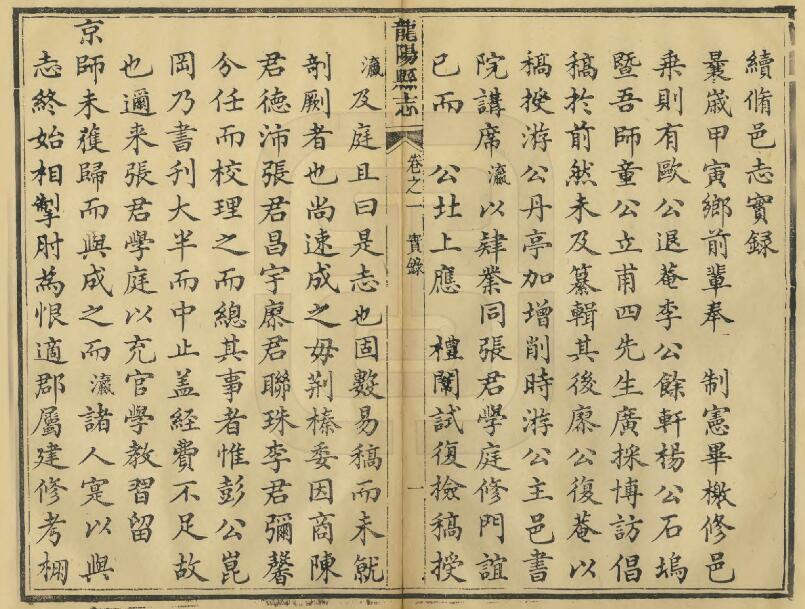 續脩邑志實録
曩歲甲寅鄉前輩奉　制憲畢檄修邑
乗則有歐公退菴李公餘軒楊公石塢
暨吾師童公立甫四先生廣採博訪倡
稿於前然未及纂輯其後廖公復菴以
稿授游公丹亭加增削時游公主邑書
院講席瀛以肄業同張君學庭修門誼
已而　公北上應　禮闈試復撿稿授
龍陽縣志
卷之一　實録
一
瀛及庭且曰是志也固數易稿而未就
剞劂者也尚速成之毋荆榛委因商陳
君德沛張君昌宇廖君聯珠李君彌馨
分任而校理之而總其事者惟彭公崑
岡乃書刋大半而中止盖経費不足故
也邇来張君學庭以充官學教習留
京師未獲歸而與成之而瀛諸人寔以與
志終始相掣肘為恨適郡屬建修考棚